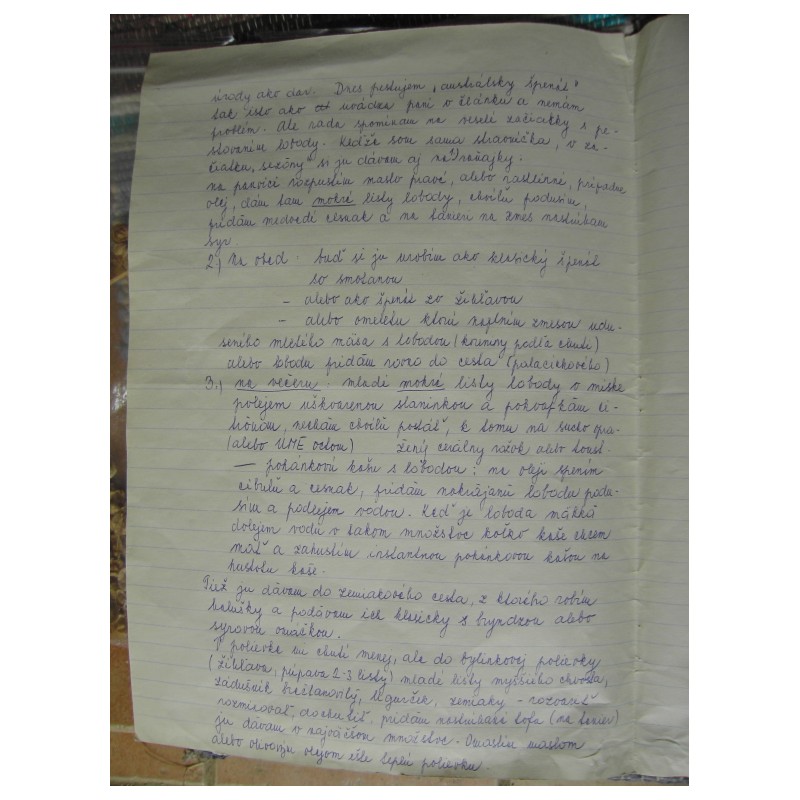 úrody ako dar. Dnes pestujem "austrálsky špenát"
tak isto ako uvádza pani v článku a nemám
problém. Ale rada spomínam na veselé začiatky s pe-
stovaním lobody. Keďže som sama stravníčka, v za-
čiatku "sezóny" si ju dávam aj na 1) raňajky:
na panvici rozpustím maslo pravé, alebo rastlinné, prípadne
olej, dám tam mokré listy lobody, chvíľu podusím,
pridám medvedí cesnak a na tanieri na zmes nastrúham
syr.
2.) Na obed: buď si ju urobím ako klasický špenát
so smotanou
- alebo ako špenát zo žihľavou
- alebo omeletu ktorú naplním zmesou udu-
seného mletého mäsa s lobodou (koreniny podľa chuti)
alebo lobodu pridám rovno do cesta (palacinkového)
3.) na večeru: mladé mokré listy lobody v miske
polejem uškvarenou slaninkou a pokvapkám ci-
trónom, nechám chvíľu postáť, k tomu na sucho opra-
(alebo UME octom) žený cerálny rožok alebo toust.
— pohánkovú kašu s lobodou: na oleji spením
cibuľu a cesnak, pridám nakrájanú lobodu podu-
sím a podlejem vodou. Keď je loboda mäkká
dolejem vodu v takom množstve koľko kaše chcem
mať a zahustím instantnou pohánkovou kašou na
hustotu kaše.
Tiež ju dávam do zemiakového cesta, z ktorého robím
halušky a podávam ich klasicky s bryndzou alebo
syrovou omáčkou.
V polievke mi chutí menej, ale do bylinkovej polievky
(žihľava, púpava 2-3 listy) mladé listy myšieho chvosta,
zádušník brečtanovitý, zemiaky - rozvariť
rozmixovať, dochutiť, pridám nastrúhané tofu (na tanier)
ju dávam v najväčšom množstve. Omastím maslom
alebo olivovým olejom ešte teplú polievku.